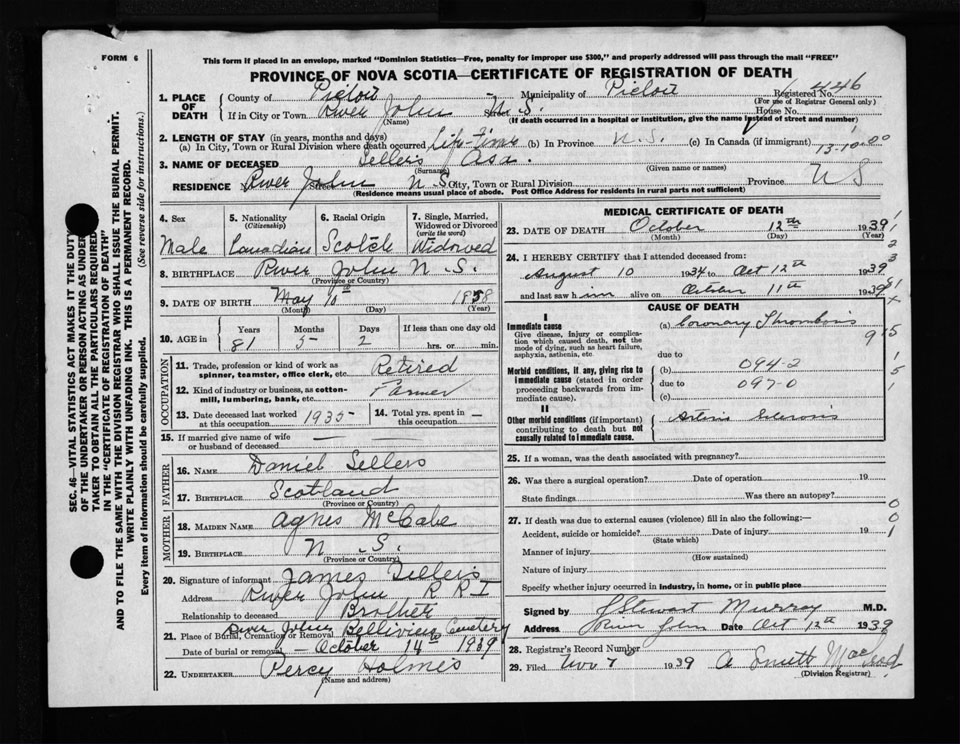 FORM 6
This form if placed in an envelope, marked "Dominion Statistics—Free, penalty for improper use $300," and properly addressed will pass through the mail "FREE"
PROVINCE OF NOVA SCOTIA—CERTIFICATE OF REGISTRATION OF DEATH
1. PLACE OF DEATH
County of Pictou Municipality of Pictou Registered No. 446
(For use of Registrar General only)
If in City or Town River John N.S. Street House No.
(Name) (If death occurred in a hospital or institution, give the name instead of street and number)
2. LENGTH OF STAY (in years, months and days)
(a) In City, Town or Rural Division where death occurred Life-Time (b) In Province N.S. (c) In Canada (if immigrant)
3. NAME OF DECEASED Sellers Asa.
(Surname) (Given name or names)
RESIDENCE River John N S City, Town or Rural Division Province N S
(Residence means usual place of abode. Post Office Address for residents in rural parts not sufficient)
4. Sex Male
5. Nationality (Citizenship) Canadian
6. Racial Origin Scotch
7. Single, Married, Widowed or Divorced (write the word) Widowed
8. BIRTHPLACE River John N.S.
(Province or Country)
9. DATE OF BIRTH May 10th 1858
(Month) (Day) (Year)
10. AGE in Years Months Days If less than one day old
81 5 2 hrs. or min.
OCCUPATION
11. Trade, profession or kind of work as spinner, teamster, office clerk, etc. Retired
12. Kind of industry or business, as cotton-mill, lumbering, bank, etc. Farmer
13. Date deceased last worked at this occupation 1935
14. Total yrs. spent in this occupation —
15. If married give name of wife or husband of deceased — —
FATHER
16. NAME Daniel Sellers
17. BIRTHPLACE Scotland
(Province or Country)
MOTHER
18. MAIDEN NAME Agnes McCabe
19. BIRTHPLACE N. S.
(Province or Country)
20. Signature of informant James Sellers
Address River John R R 1
Relationship to deceased Brother
21. Place of Burial, Cremation or Removal River John Cemetery
Date of burial or removal October 14th 1939
22. UNDERTAKER Percy Holmes
(Name and address)
MEDICAL CERTIFICATE OF DEATH
23. DATE OF DEATH October 12th 1939
(Month) (Day) (Year)
24. I HEREBY CERTIFY that I attended deceased from:
August 10 1934 to Oct 12th 1939
and last saw him alive on October 11th 1939
CAUSE OF DEATH
I
Immediate cause
Give disease, injury or complication which caused death, not the mode of dying, such as heart failure, asphyxia, asthenia, etc.
(a) Coronary Thrombosis
due to
Morbid conditions, if any, giving rise to immediate cause (stated in order proceeding backwards from immediate cause).
(b) 094-2
due to 097-0
(c)
II
Other morbid conditions (if important) contributing to death but not causally related to immediate cause.
Arterio Sclerosis
25. If a woman, was the death associated with pregnancy?
26. Was there a surgical operation? Date of operation 19
State findings Was there an autopsy?
27. If death was due to external causes (violence) fill in also the following:—
Accident, suicide or homicide? Date of injury 19
(State which)
Manner of injury
(How sustained)
Nature of injury
Specify whether injury occurred in industry, in home, or in public place
Signed by J Stewart Murray M.D.
Address River John Date Oct 12th 1939
28. Registrar's Record Number
29. Filed Nov 7 1939
(Division Registrar)
SEC. 46—VITAL STATISTICS ACT MAKES IT THE DUTY
OF THE UNDERTAKER OR PERSON ACTING AS UNDER-
TAKER TO OBTAIN ALL THE PARTICULARS REQUIRED
IN THE "CERTIFICATE OF REGISTRATION OF DEATH"
AND TO FILE THE SAME WITH THE DIVISION REGISTRAR WHO SHALL ISSUE THE BURIAL PERMIT.
WRITE PLAINLY WITH UNFADING INK. THIS IS A PERMANENT RECORD.
Every item of information should be carefully supplied. (See reverse side for instructions.)